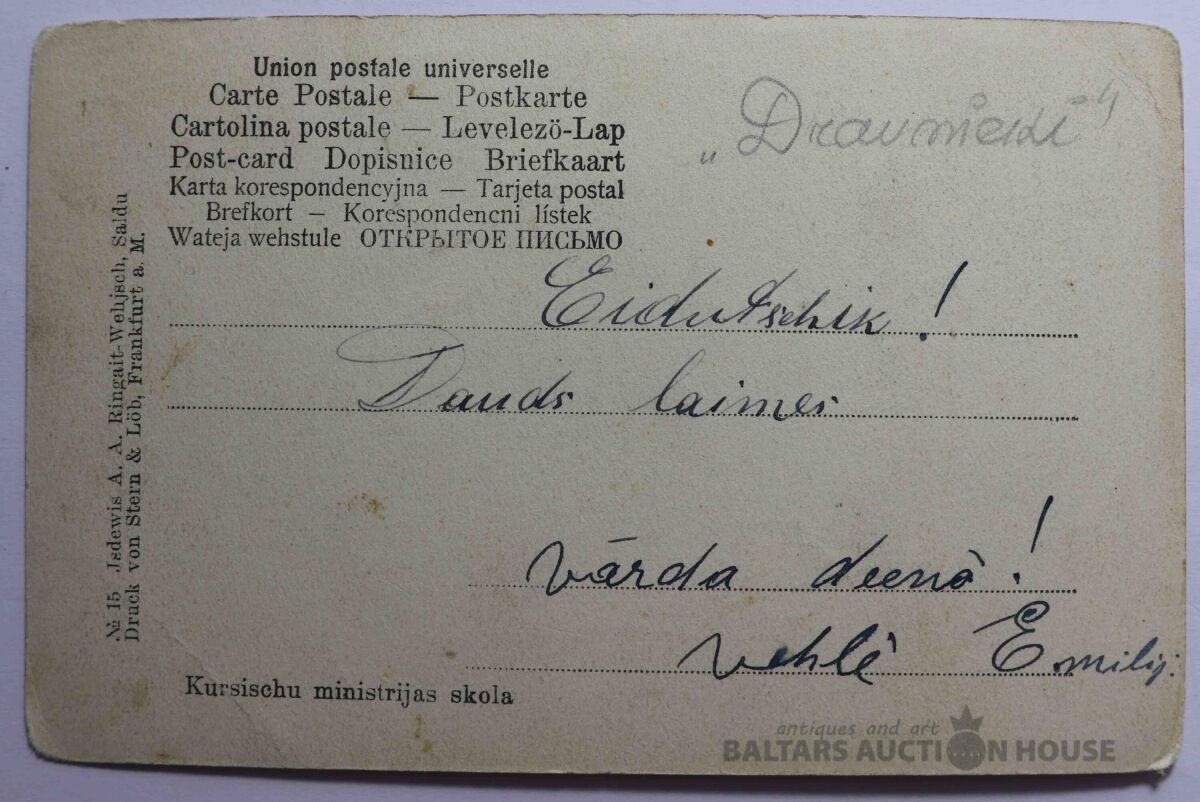 Union postale universelle
Carte Postale — Postkarte
Cartolina postale — Levelezö-Lap
Post-card Dopisnice Briefkaart
Karta korespondencyjna — Tarjeta postal
Brefkort — Korespondencni lístek
Wateja wehstule ОТКРЫТОЕ ПИСЬМО
„Dravnieki"
Eidutschik!
Dauds laimes
vārda deenā!
vehlē Emilij.
№ 15 Jsdewis A. A. Ringait-Wehjsch, Saldu
Druck von Stern & Löb, Frankfurt a. M.
Kursischu ministrijas skola
antiques and art
BALTARS AUCTION HOUSE